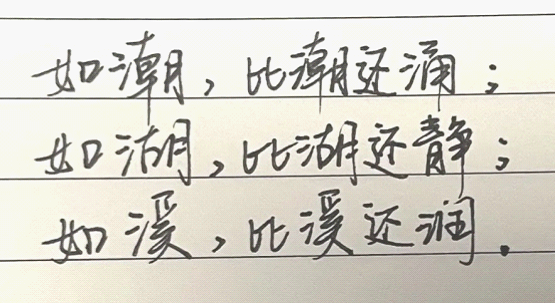 如潮，比潮还涌；
如湖，比湖还静；
如溪，比溪还润。